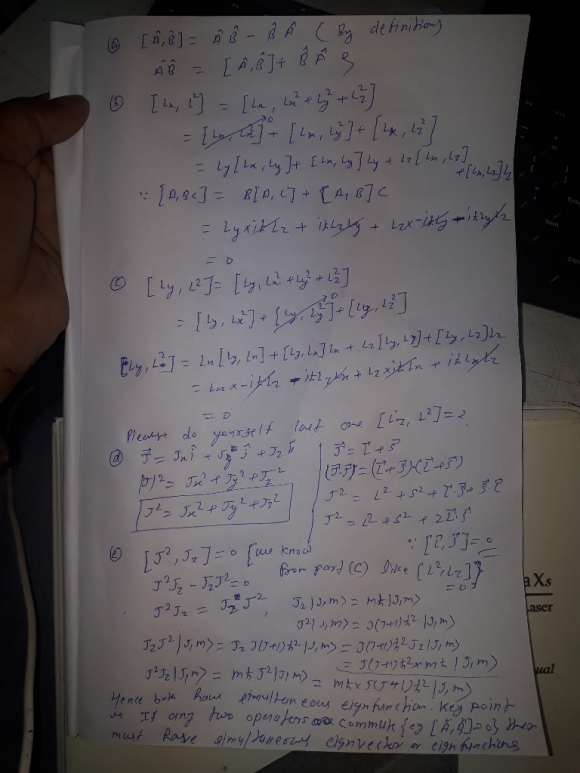 (a) [Â,B̂] = ÂB̂ - B̂Â (By definition)
ÂB̂ = [Â,B̂] + B̂Â
(b) [Lx, L²] = [Lx, Lx² + Ly² + Lz²]
= [Lx, Lx²]⁰ + [Lx, Ly²] + [Lx, Lz²]
= Ly[Lx, Ly] + [Lx, Ly]Ly + Lz[Lx, Lz] + [Lx, Lz]Lz
∵ [A,BC] = B[A,C] + [A,B]C
= Ly×iħLz + iħLzLy + Lz×-iħLy - iħLyLz
= 0
(c) [Ly, L²] = [Ly, Lx² + Ly² + Lz²]
= [Ly, Lx²] + [Ly, Ly²]⁰ + [Ly, Lz²]
[Ly, L²] = Lx[Ly, Lx] + [Ly, Lx]Lx + Lz[Ly, Lz] + [Ly, Lz]Lz
= Lx×-iħLz - iħLzLx + Lz×iħLx + iħLxLz
= 0
Please do yourself last one [Lz, L²] = ?
(d) J⃗ = Jxî + Jyĵ + Jzk̂
|J|² = Jx² + Jy² + Jz²
J² = Jx² + Jy² + Jz²
J⃗ = L⃗ + S⃗
(J⃗.J⃗) = (L⃗+S⃗)(L⃗+S⃗)
J² = L² + S² + L⃗.S⃗ + S⃗.L⃗
J² = L² + S² + 2L⃗.S⃗
∵ [L⃗,S⃗] = 0
(e) [J², Jz] = 0 [we know
from part (c) like [L²,Lz] = 0}
J²Jz - JzJ² = 0
J²Jz = JzJ², Jz|J,m⟩ = mħ|J,m⟩
J²|J,m⟩ = J(J+1)ħ²|J,m⟩
JzJ²|J,m⟩ = Jz J(J+1)ħ²|J,m⟩ = J(J+1)ħ²Jz|J,m⟩
= J(J+1)ħ²×mħ|J,m⟩
J²Jz|J,m⟩ = mħJ²|J,m⟩ = mħ×J(J+1)ħ²|J,m⟩
Hence both have simultaneous eignfunction. Key point
If any two operators commute {eg [Â,B̂]=0} then
must have simultaneous eignvector or eignfunctions
aXs
Laser
ual